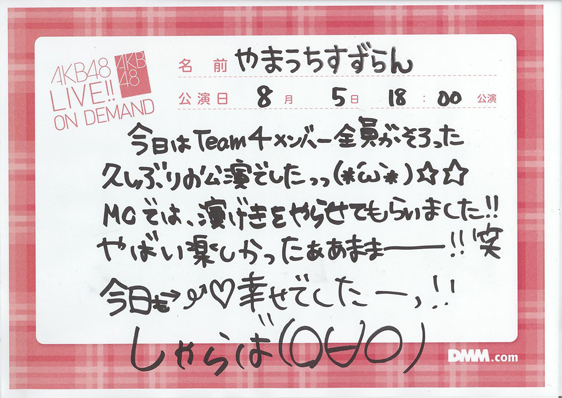 AKB48
LIVE!!
ON DEMAND
AKB
48
名前 やまうちすずらん
公演日 8月 5日 18:00 公演
今日はTeam4メンバー全員がそろった
久しぶりの公演でしたっっ(*´ω`*)☆☆
MCでは、演げきをやらせてもらいました!!
やばい楽しかったぁぁままーーー!!笑
今日も→♡幸せでしたーっ!!
しゃらば(Q∀O)
DMM.com